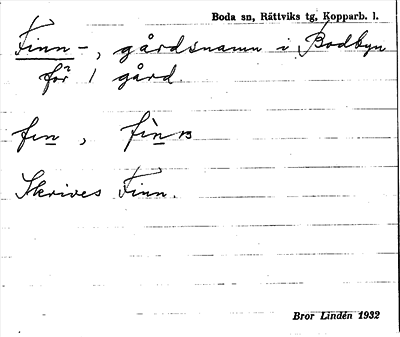 Boda sn, Rättviks tg, Kopparb. l.
Finn-, gårdsnamn i Bodbyn
för 1 gård.
fin, fin
Skrives Finn.
Bror Lindén 1932